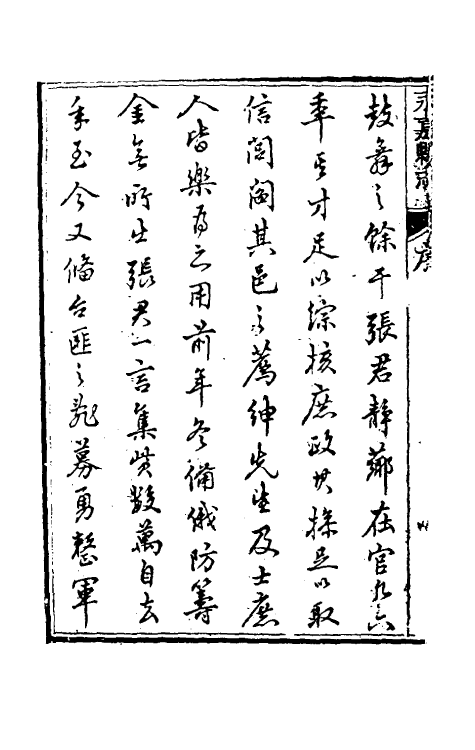 永嘉縣志 序
鼓舞之餘干張君靜薌在官凡六
年其才足以綜核庶政其操足以取
信閭閻其邑之薦紳先生及士庶
人皆樂爲之用前年冬備俄防籌
金無所出張君一言集貲數萬自去
年至今又備台匪之亂募勇整軍